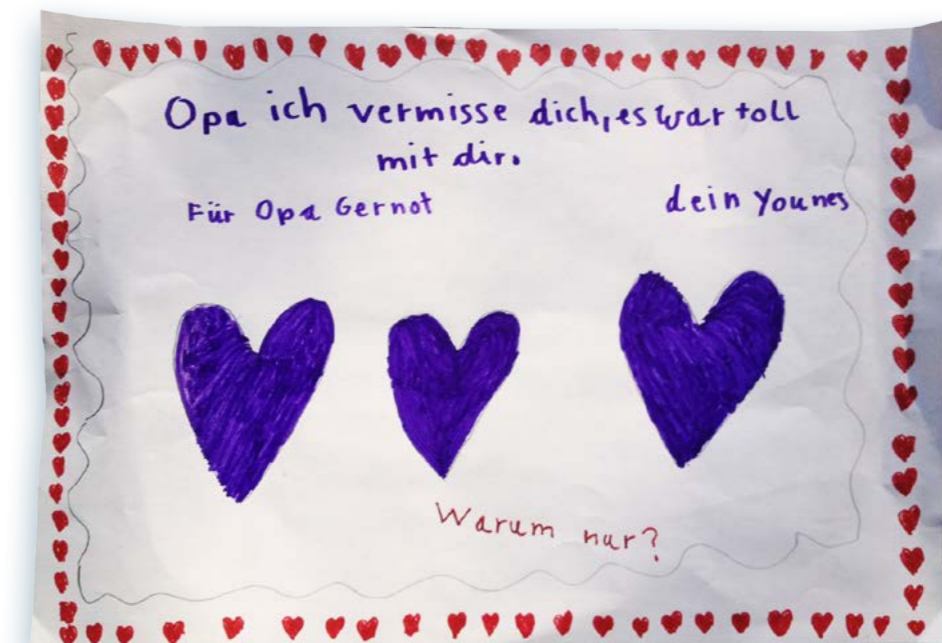 Opa ich vermisse dich, es war toll
mit dir.
Für Opa Gernot
dein Younes
Warum nur?